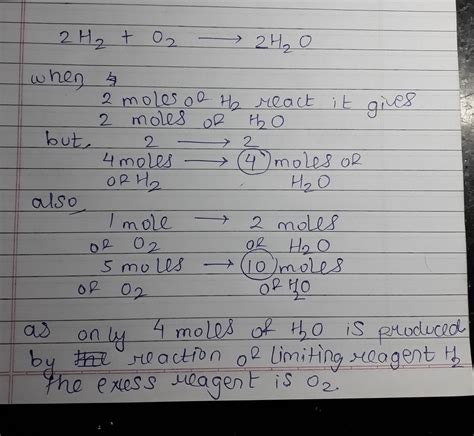 2H₂ + O₂ → 2H₂O
when
2 moles of H₂ react it gives
2 moles of H₂O
but, 2 → 2
4 moles → 4 moles of
of H₂ H₂O
also
1 mole → 2 moles
of O₂ of H₂O
5 moles → 10 moles
of O₂ of H₂O
as only 4 moles of H₂O is produced
by reaction of limiting reagent H₂
the exess reagent is O₂.